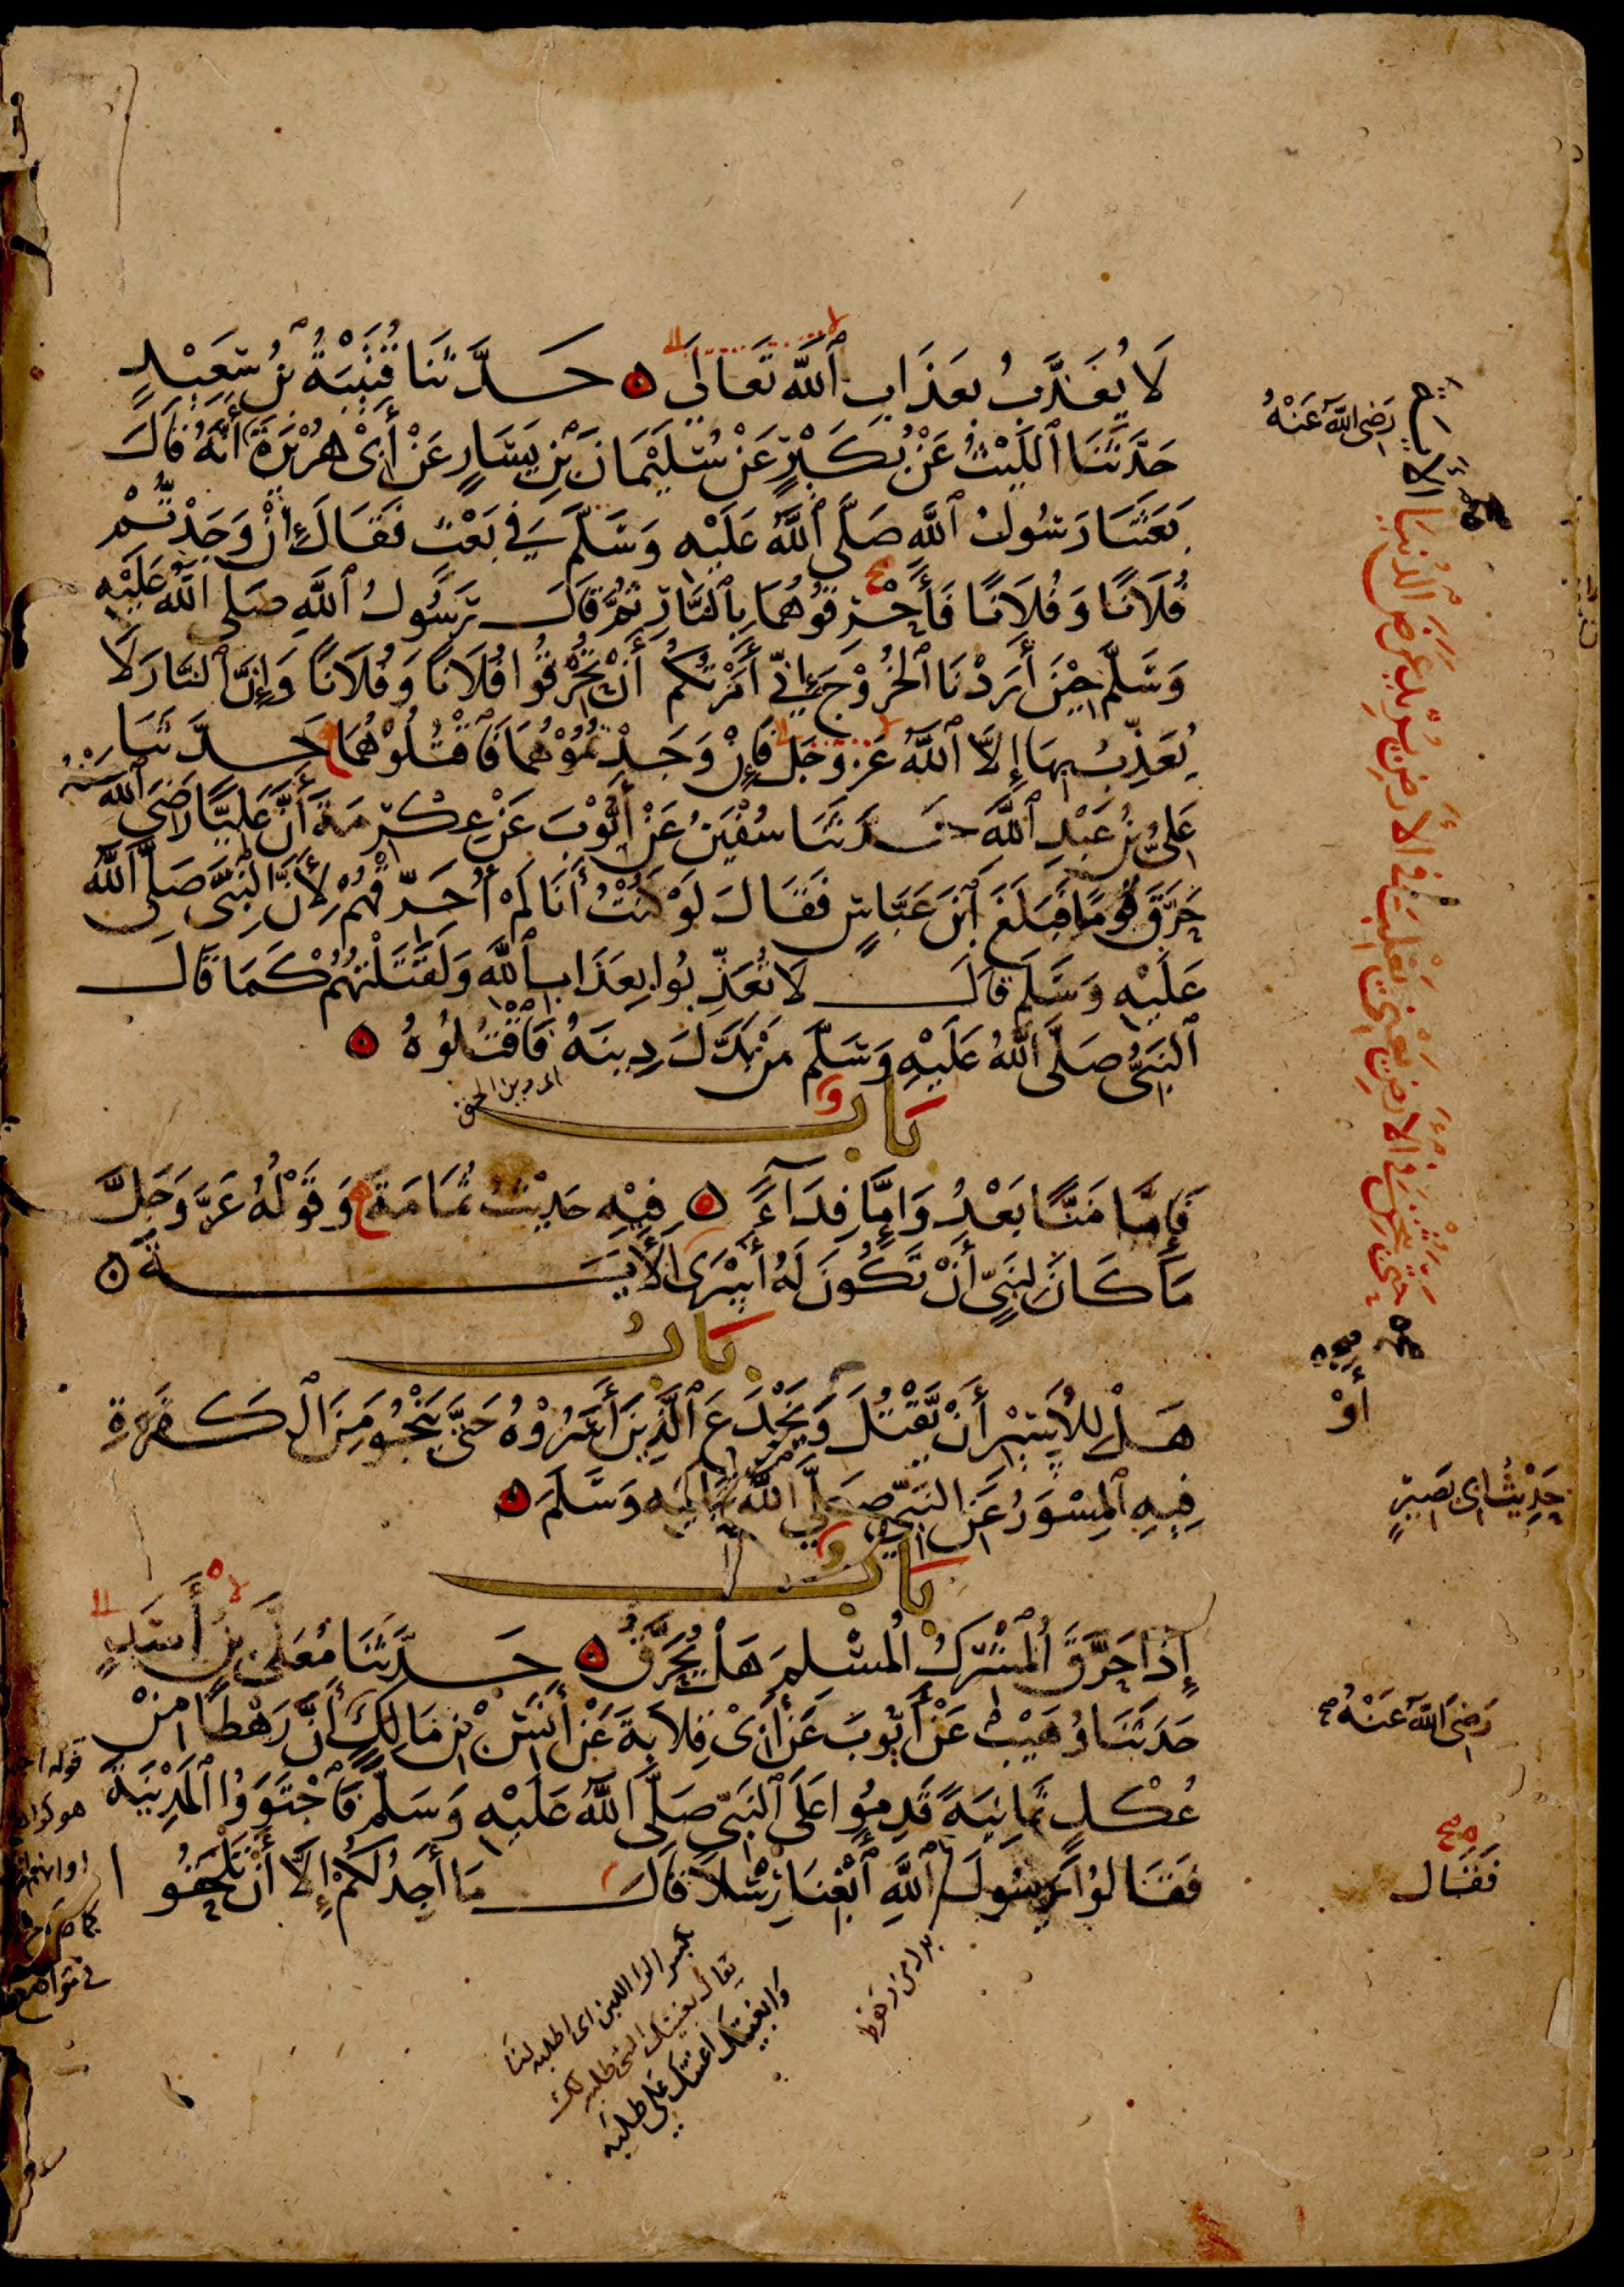 لَا يُعَذَّبُ بِعَذَابِ ٱللَّهِ تَعَالَى ۝ حَدَّثَنَا قُتَيْبَةُ بْنُ سَعِيْدٍ
حَدَّثَنَا ٱللَّيْثُ عَنْ بُكَيْرٍ عَنْ سُلَيْمَانَ بْنِ يَسَارٍ عَنْ أَبِيْ هُرَيْرَةَ أَنَّهُ قَالَ
بَعَثَنَا رَسُولُ ٱللَّهِ صَلَّى ٱللَّهُ عَلَيْهِ وَسَلَّمَ فِي بَعْثٍ فَقَالَ إِنْ وَجَدْتُمْ
فُلَانًا وَفُلَانًا فَأَحْرِقُوْهُمَا بِٱلنَّارِ ثُمَّ قَالَ رَسُولُ ٱللَّهِ صَلَّى ٱللَّهُ عَلَيْهِ
وَسَلَّمَ حِيْنَ أَرَدْنَا ٱلْخُرُوْجَ إِنِّي أَمَرْتُكُمْ أَنْ تُحْرِقُوا فُلَانًا وَفُلَانًا وَإِنَّ ٱلنَّارَ لَا
يُعَذِّبُ بِهَا إِلَّا ٱللَّهُ عَزَّ وَجَلَّ فَإِنْ وَجَدْتُمُوْهُمَا فَٱقْتُلُوْهُمَا حَدَّثَنَا
عَلِيُّ بْنُ عَبْدِ ٱللَّهِ حَدَّثَنَا سُفْيَنُ عَنْ أَيُّوْبَ عَنْ عِكْرِمَةَ أَنَّ عَلِيًّا رَضِيَ ٱللَّهُ عَنْهُ
حَرَّقَ قَوْمًا فَبَلَغَ ٱبْنَ عَبَّاسٍ فَقَالَ لَوْ كُنْتُ أَنَا لَمْ أُحَرِّقْهُمْ لِأَنَّ ٱلنَّبِيَّ صَلَّى ٱللَّهُ
عَلَيْهِ وَسَلَّمَ قَالَ لَا تُعَذِّبُوا بِعَذَابِ ٱللَّهِ وَلَقَتَلْتُهُمْ كَمَا قَالَ
ٱلنَّبِيُّ صَلَّى ٱللَّهُ عَلَيْهِ وَسَلَّمَ مَنْ بَدَّلَ دِينَهُ فَٱقْتُلُوهُ ۝
بَابُ
فَإِمَّا مَنًّا بَعْدُ وَإِمَّا فِدَآءً ۝ فِيْهِ حَدِيْثُ ثُمَامَةَ وَقَوْلُهُ عَزَّ وَجَلَّ
مَا كَانَ لِنَبِيٍّ أَنْ تَكُونَ لَهُ أَسْرَى ٱلْآيَةَ ۝
بَابُ
هَلْ لِلْأَسِيْرِ أَنْ يَقْتُلَ وَيَخْدَعَ ٱلَّذِيْنَ أَسَرُوْهُ حَتَّى يَنْجُوَ مِنَ ٱلْكَفَرَةِ
فِيهِ ٱلْمِسْوَرُ عَنِ النَّبِيِّ صَلَّى ٱللَّهُ عَلَيْهِ وَسَلَّمَ ۝
بَابُ
إِذَا حَرَّقَ ٱلْمُشْرِكُ ٱلْمُسْلِمَ هَلْ يُحَرَّقُ ۝ حَدَّثَنَا مُعَلَّى بْنُ أَسَدٍ
حَدَّثَنَا وُهَيْبٌ عَنْ أَيُّوبَ عَنْ أَبِيْ قِلَابَةَ عَنْ أَنَسِ بْنِ مَالِكٍ أَنَّ رَهْطًا مِنْ
عُكْلٍ ثَمَانِيَةً قَدِمُوا عَلَى ٱلنَّبِيِّ صَلَّى ٱللَّهُ عَلَيْهِ وَسَلَّمَ فَٱجْتَوَوُا ٱلْمَدِيْنَةَ
فَقَالُوا يَرَسُولَ ٱللَّهِ ٱبْغِنَا رِسْلًا قَالَ مَا أَجِدُ لَكُمْ إِلَّا أَنْ تَلْحَقُوا
رَضِيَ اللَّهُ عَنْهُ
عَرَضَ الدُّنْيَا
حَتَّى يُثْخِنَ فِي الْأَرْضِ يَعْنِي يَغْلِبَ فِي الْأَرْضِ تُرِيدُونَ
أَوْ
حَدِيْثُ ابى بَصِيْرٍ
رَضِيَ اللَّهُ عَنْهُ
فَقَالَ
بدل من رهط
بكسر الرا اللبن اى اطلبه لنا
يقال بغيتك الشى طلبته لك
وابغيتك اعنتك على طلبه